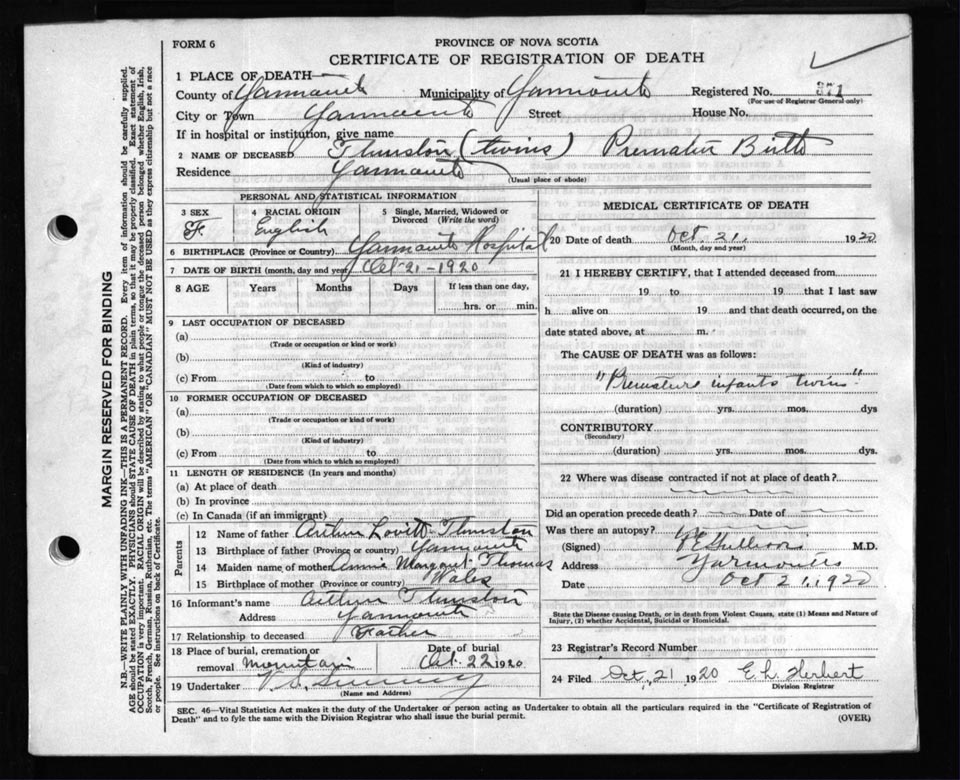 FORM 6
PROVINCE OF NOVA SCOTIA
CERTIFICATE OF REGISTRATION OF DEATH
1 PLACE OF DEATH—
County of Yarmouth Municipality of Yarmouth Registered No. 371
(For use of Registrar General only)
City or Town Yarmouth Street House No.
If in hospital or institution, give name
2 NAME OF DECEASED Thurston (twins) Premature Birth
Residence Yarmouth
(Usual place of abode)
PERSONAL AND STATISTICAL INFORMATION
3 SEX 4 RACIAL ORIGIN 5 Single, Married, Widowed or Divorced (Write the word)
F English
6 BIRTHPLACE (Province or Country) Yarmouth Hospital
7 DATE OF BIRTH (month, day and year) Oct 21-1920
8 AGE Years Months Days If less than one day,
hrs. or min.
9 LAST OCCUPATION OF DECEASED
(a)
(Trade or occupation or kind or work)
(b)
(Kind of industry)
(c) From to
(Date from which to which so employed)
10 FORMER OCCUPATION OF DECEASED
(a)
(Trade or occupation or kind of work)
(b)
(Kind of industry)
(c) From to
(Date from which to which so employed)
11 LENGTH OF RESIDENCE (In years and months)
(a) At place of death
(b) In province
(c) In Canada (if an immigrant)
Parents
12 Name of father Arthur Lovitt Thurston
13 Birthplace of father (Province or country) Yarmouth
14 Maiden name of mother Annie Margaret Thomas
15 Birthplace of mother (Province or country) Wales
16 Informant's name Arthur Thurston
Address Yarmouth
17 Relationship to deceased Father
18 Place of burial, cremation or removal Mountain Date of burial Oct. 22 1920
19 Undertaker V. S. Sweeney
(Name and Address)
MEDICAL CERTIFICATE OF DEATH
20 Date of death Oct. 21, 1920
(Month, day and year)
21 I HEREBY CERTIFY, that I attended deceased from
19 to 19 that I last saw
h alive on 19 and that death occurred, on the
date stated above, at m.
The CAUSE OF DEATH was as follows:
"Premature infants twins."
(duration) yrs. mos. dys
CONTRIBUTORY
(Secondary)
(duration) yrs. mos. dys.
22 Where was disease contracted if not at place of death?
Did an operation precede death? Date of
Was there an autopsy?
(Signed) M.D.
Address Yarmouth
Date Oct 21, 1920
State the Disease causing Death, or in death from Violent Causes, state (1) Means and Nature of
Injury, (2) whether Accidental, Suicidal or Homicidal.
23 Registrar's Record Number
24 Filed Oct, 21 1920 E. L. Herbert
Division Registrar
SEC. 46—Vital Statistics Act makes it the duty of the Undertaker or person acting as Undertaker to obtain all the particulars required in the "Certificate of Registration of
Death" and to fyle the same with the Division Registrar who shall issue the burial permit.
(OVER)
MARGIN RESERVED FOR BINDING
N.B.—WRITE PLAINLY WITH UNFADING INK—THIS IS A PERMANENT RECORD. Every item of information should be carefully supplied.
AGE should be stated EXACTLY. PHYSICIANS should STATE CAUSE OF DEATH in plain terms, so that it may be properly classified. Exact statement of
OCCUPATION is very important. RACIAL ORIGIN will be described by stating to what people or tongue the deceased person belonged whether English, Irish,
Scotch, French, German, Russian, Ruthenian, etc. The terms "AMERICAN" OR "CANADIAN" MUST NOT BE USED as they express citizenship but not a race
or people. See instructions on back of Certificate.